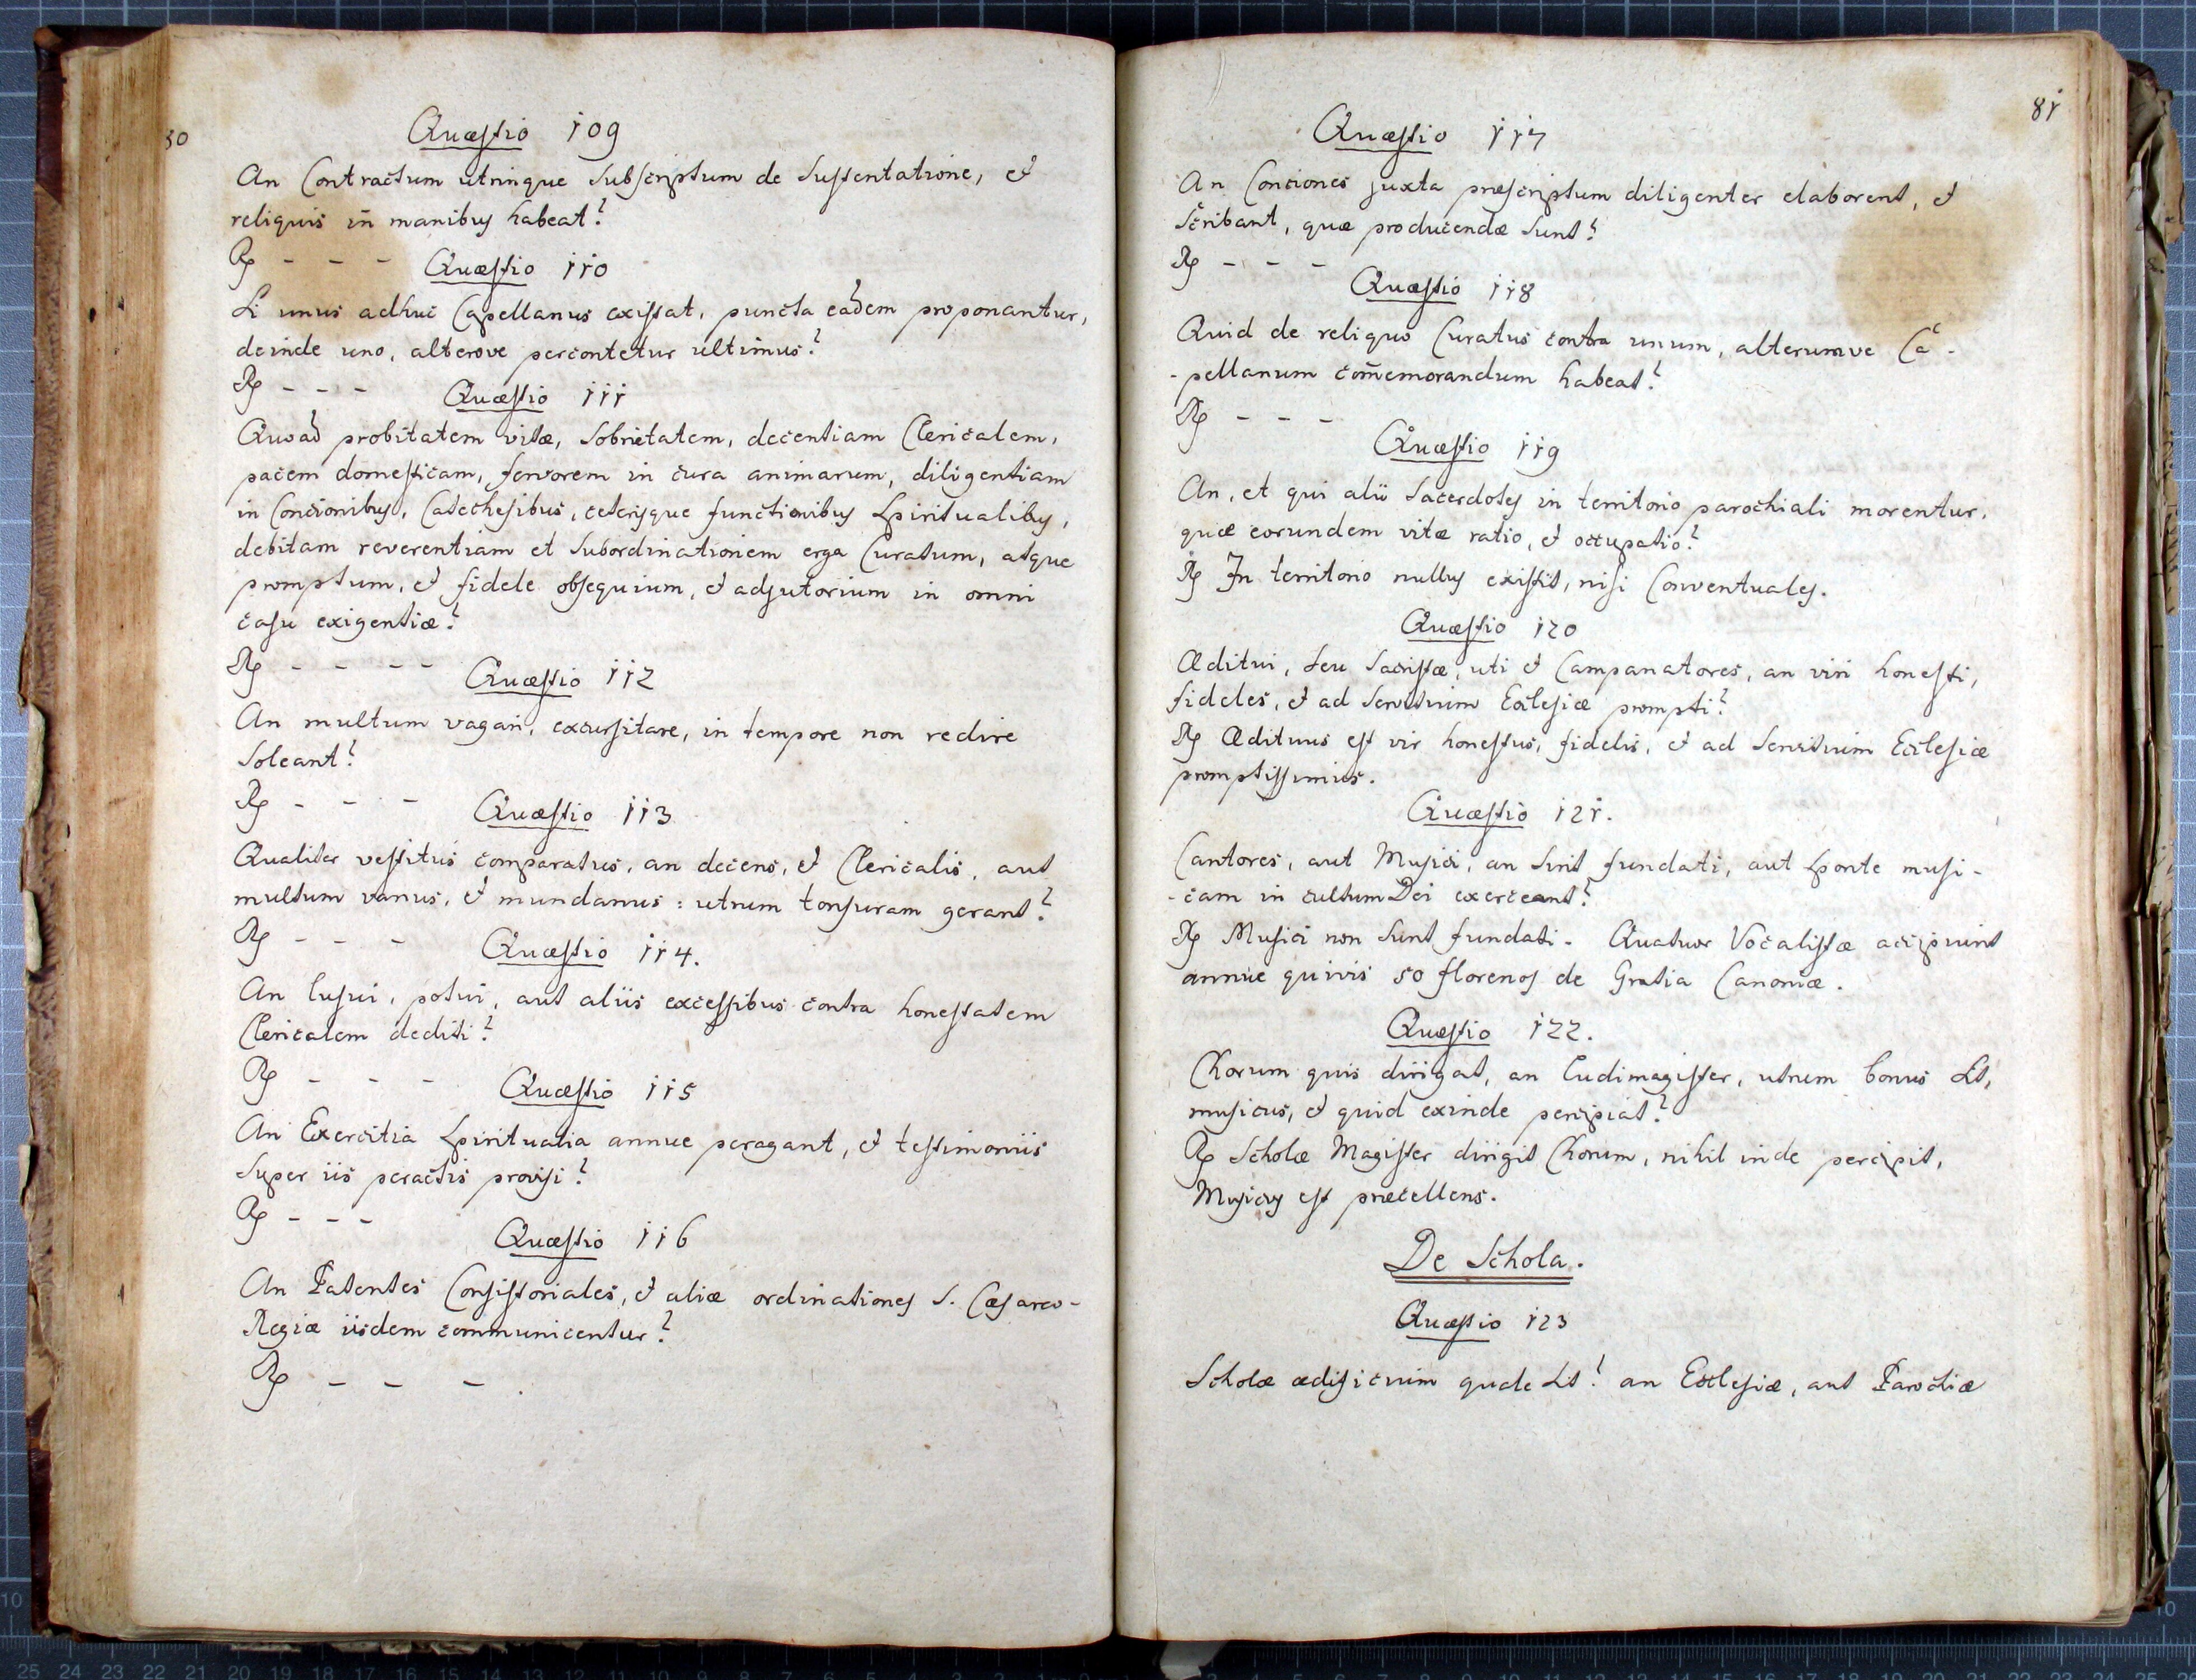 80
Quæstio 109
An Contractum utrinque subscriptum de sustentatione, et
reliquis in manibus habeat?
R - - -
Quæstio 110
Si unus adhuc Capellanus existat, puncta eadem proponantur,
deinde uno, alterove percontetur ultimus?
R - - -
Quæstio 111
Quoad probitatem vitæ, sobrietatem, decentiam Clericalem,
pacem domesticam, fervorem in cura animarum, diligentiam
in Concionibus, Catechesibus, ceterisque functionibus spiritualibus,
debitam reverentiam et subordinationem erga Curatum, atque
promptum, et fidele obsequium, et adjutorium in omni
casu exigentiæ?
R - - - -
Quæstio 112
An multum vagari, excursitare, in tempore non redire
soleant?
R - - -
Quæstio 113
Qualiter vestitus comparatus, an decens, et Clericalis, aut
multum vanus, et mundanus: utrum tonsuram gerant?
R - - -
Quæstio 114.
An lusui, potui, aut aliis excessibus contra honestatem
Clericalem dediti?
R - - -
Quæstio 115
An Exercitia spiritualia annue peragant, et testimoniis
super iis peractis provisi?
R - - -
Quæstio 116
An Patentes Consistoriales, et aliæ ordinationes S. Cæsareo-
Regiæ iisdem communicentur?
R - - - .
81
Quæstio 117
An Conciones juxta præscriptum diligenter elaborent, et
scribant, quæ producendæ sunt?
R - - -
Quæstio 118
Quid de reliquo Curatus contra unum, alterumve Ca-
-pellanum com̄emorandum habeat?
R - - -
Quæstio 119
An, et qui alii sacerdotes in territorio parochiali morentur,
quæ eorundem vitæ ratio, et occupatio?
R In territorio nullus existit, nisi Conventuales.
Quæstio 120
Æditui, seu sacristæ, uti et Campanatores, an viri honesti,
fideles, et ad servitium Ecclesiæ prompti?
R Ædituus est vir honestus, fidelis, et ad servitium Ecclesiæ
promptissimus.
Quæstio 121.
Cantores, aut Musici, an sint fundati, aut sponte musi-
-cam in cultum Dei exerceant?
R Musici non sunt fundati. Quatuor Vocalistæ accipiunt
annue quivis 50 florenos de Gratia Canoniæ.
Quæstio 122.
Chorum quis dirigat, an Ludimagister, utrum bonus sit,
musicus, et quid exinde percipiat?
R Scholæ Magister dirigit Chorum, nihil inde percipit,
Musicus est præcellens.
De Schola.
Quæstio 123
Scholæ ædificium quale sit? an Ecclesiæ, aut Parochiæ